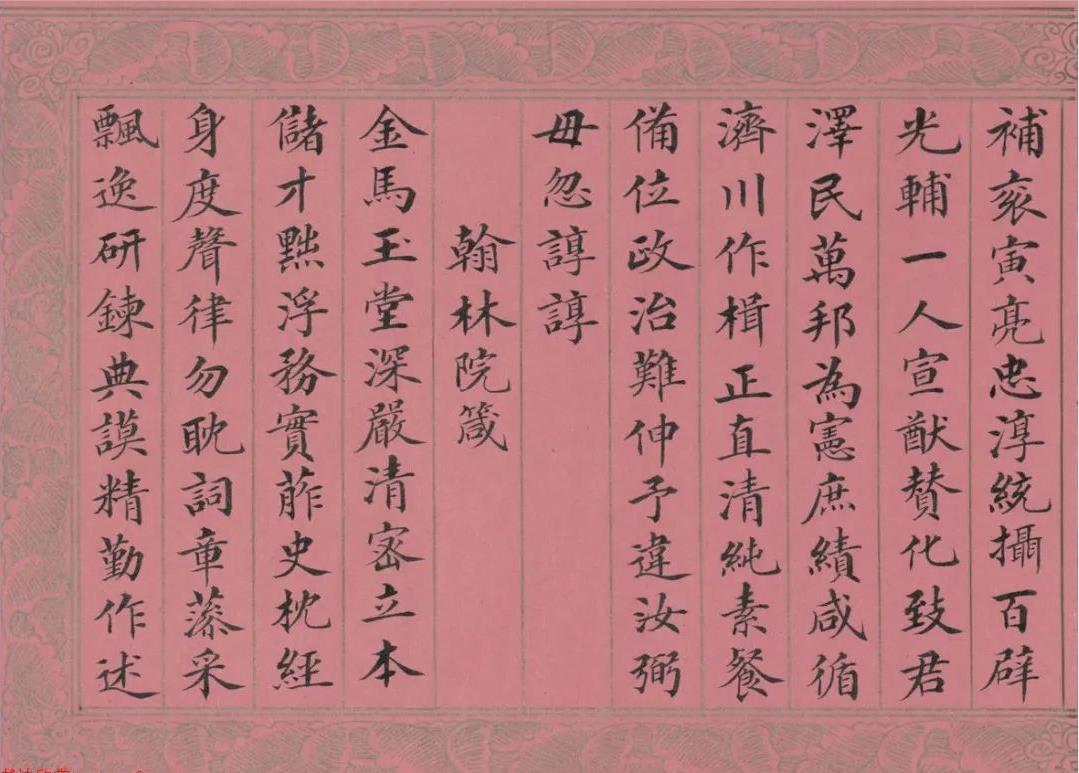 補衮寅亮忠淳統攝百辟
光輔一人宣猷贊化致君
澤民萬邦為憲庶績咸循
濟川作楫正直清純素餐
備位政治難伸予違汝弼
毋忽諄諄
翰林院箴
金馬玉堂深嚴清宻立本
儲才黜浮務實葄史枕經
身度聲律勿耽詞章藻采
飄逸研鍊典謨精勤作述